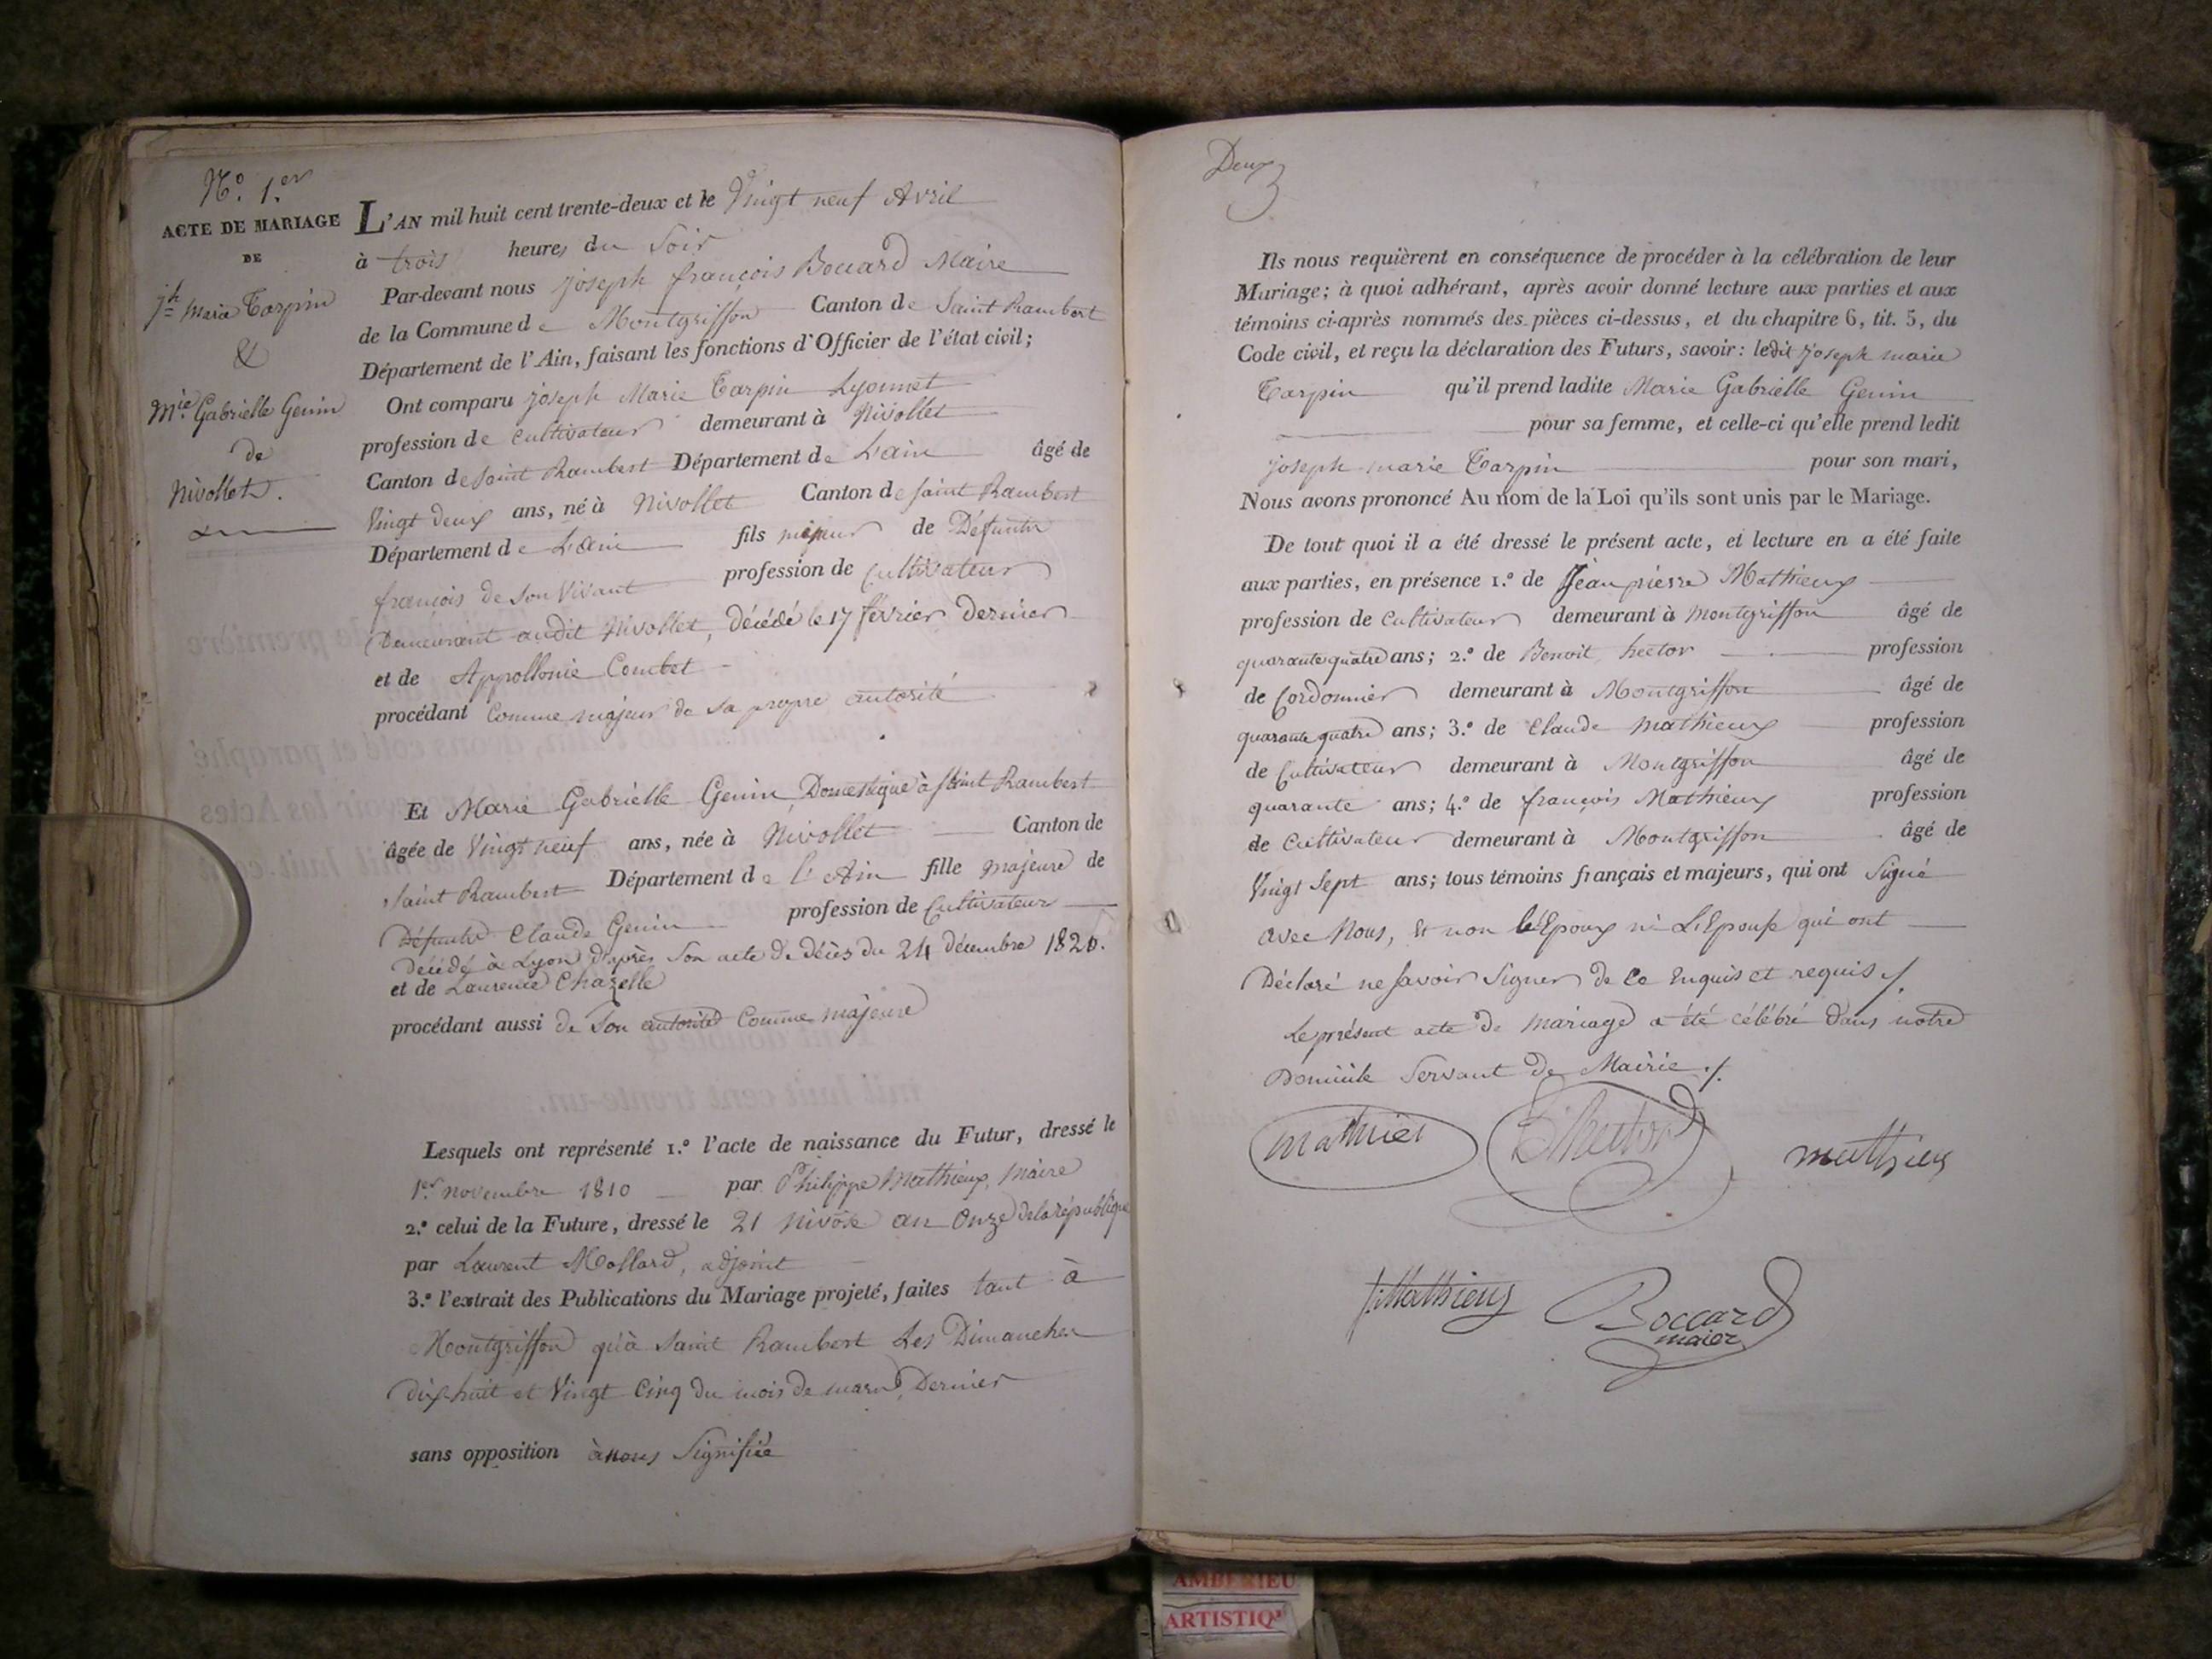 N.º 1.er
ACTE DE MARIAGE
DE
jh Marie Tarpin
&
Mie Gabrielle Genin
de
Nivollet.
L'AN mil huit cent trente-deux et le Vingt neuf Avril
à trois heures du Soir
Par-devant nous joseph françois Boccard Maire
de la Commune de Montgriffon Canton de Saint Rambert
Département de l'Ain, faisant les fonctions d'Officier de l'état civil;
Ont comparu joseph Marie Tarpin Lyonnet
profession de Cultivateur demeurant à Nivollet
Canton de Saint Rambert Département de L'ain âgé de
Vingt deux ans, né à Nivollet Canton de Saint Rambert
Département de L'ain fils majeur de Défunt
françois de Son Vivant profession de Cultivateur
Demeurant audit Nivollet, décédé le 17 février dernier
et de Appollonie Combet
procédant Comme majeur de sa propre autorité
Et Marie Gabrielle Genin, Domestique à Saint Rambert
âgée de Vingt neuf ans, née à Nivollet Canton de
Saint Rambert Département de L'Ain fille majeure de
Défunt Claude Genin profession de Cultivateur
Décédé à Lyon d'après Son acte de décès du 24 décembre 1826.
et de Laurence Chazelle
procédant aussi de Son autorité Comme majeure
Lesquels ont représenté 1.º l'acte de naissance du Futur, dressé le
1er novembre 1810 par Philippe Mathieux, Maire
2.º celui de la Future, dressé le 21 nivôse an Onze de la république
par Laurent Mollard, adjoint
3.º l'extrait des Publications du Mariage projeté, faites tant à
Montgriffon qu'à Saint Rambert Les Dimanches
dix huit et Vingt Cinq du mois de mars Dernier
sans opposition à nous Signifiée
Deux
Ils nous requièrent en conséquence de procéder à la célébration de leur
Mariage; à quoi adhérant, après avoir donné lecture aux parties et aux
témoins ci-après nommés des pièces ci-dessus, et du chapitre 6, tit. 5, du
Code civil, et reçu la déclaration des Futurs, savoir: ledit joseph marie
Tarpin qu'il prend ladite Marie Gabrielle Genin
pour sa femme, et celle-ci qu'elle prend ledit
joseph marie Tarpin pour son mari,
Nous avons prononcé Au nom de la Loi qu'ils sont unis par le Mariage.
De tout quoi il a été dressé le présent acte, et lecture en a été faite
aux parties, en présence 1.º de Jean pierre Mathieux
profession de Cultivateur demeurant à Montgriffon âgé de
quarante quatre ans; 2.º de Benoit hector profession
de Cordonnier demeurant à Montgriffon âgé de
quarante quatre ans; 3.º de Claude Mathieux profession
de Cultivateur demeurant à Montgriffon âgé de
quarante ans; 4.º de françois Mathieux profession
de Cultivateur demeurant à Montgriffon âgé de
Vingt Sept ans; tous témoins français et majeurs, qui ont Signé
avec Nous, Et non l'Epoux ni L'Epouse qui ont
Déclaré ne Savoir Signer de Ce Enquis et requis ./.
Le présent acte de Mariage a été célébré dans notre
Domicile Servant de Mairie ./.
Mathieu
B. hector
Mathieux
f. Mathieux
Boccard
maire
AMBERIEU
ARTISTIQ